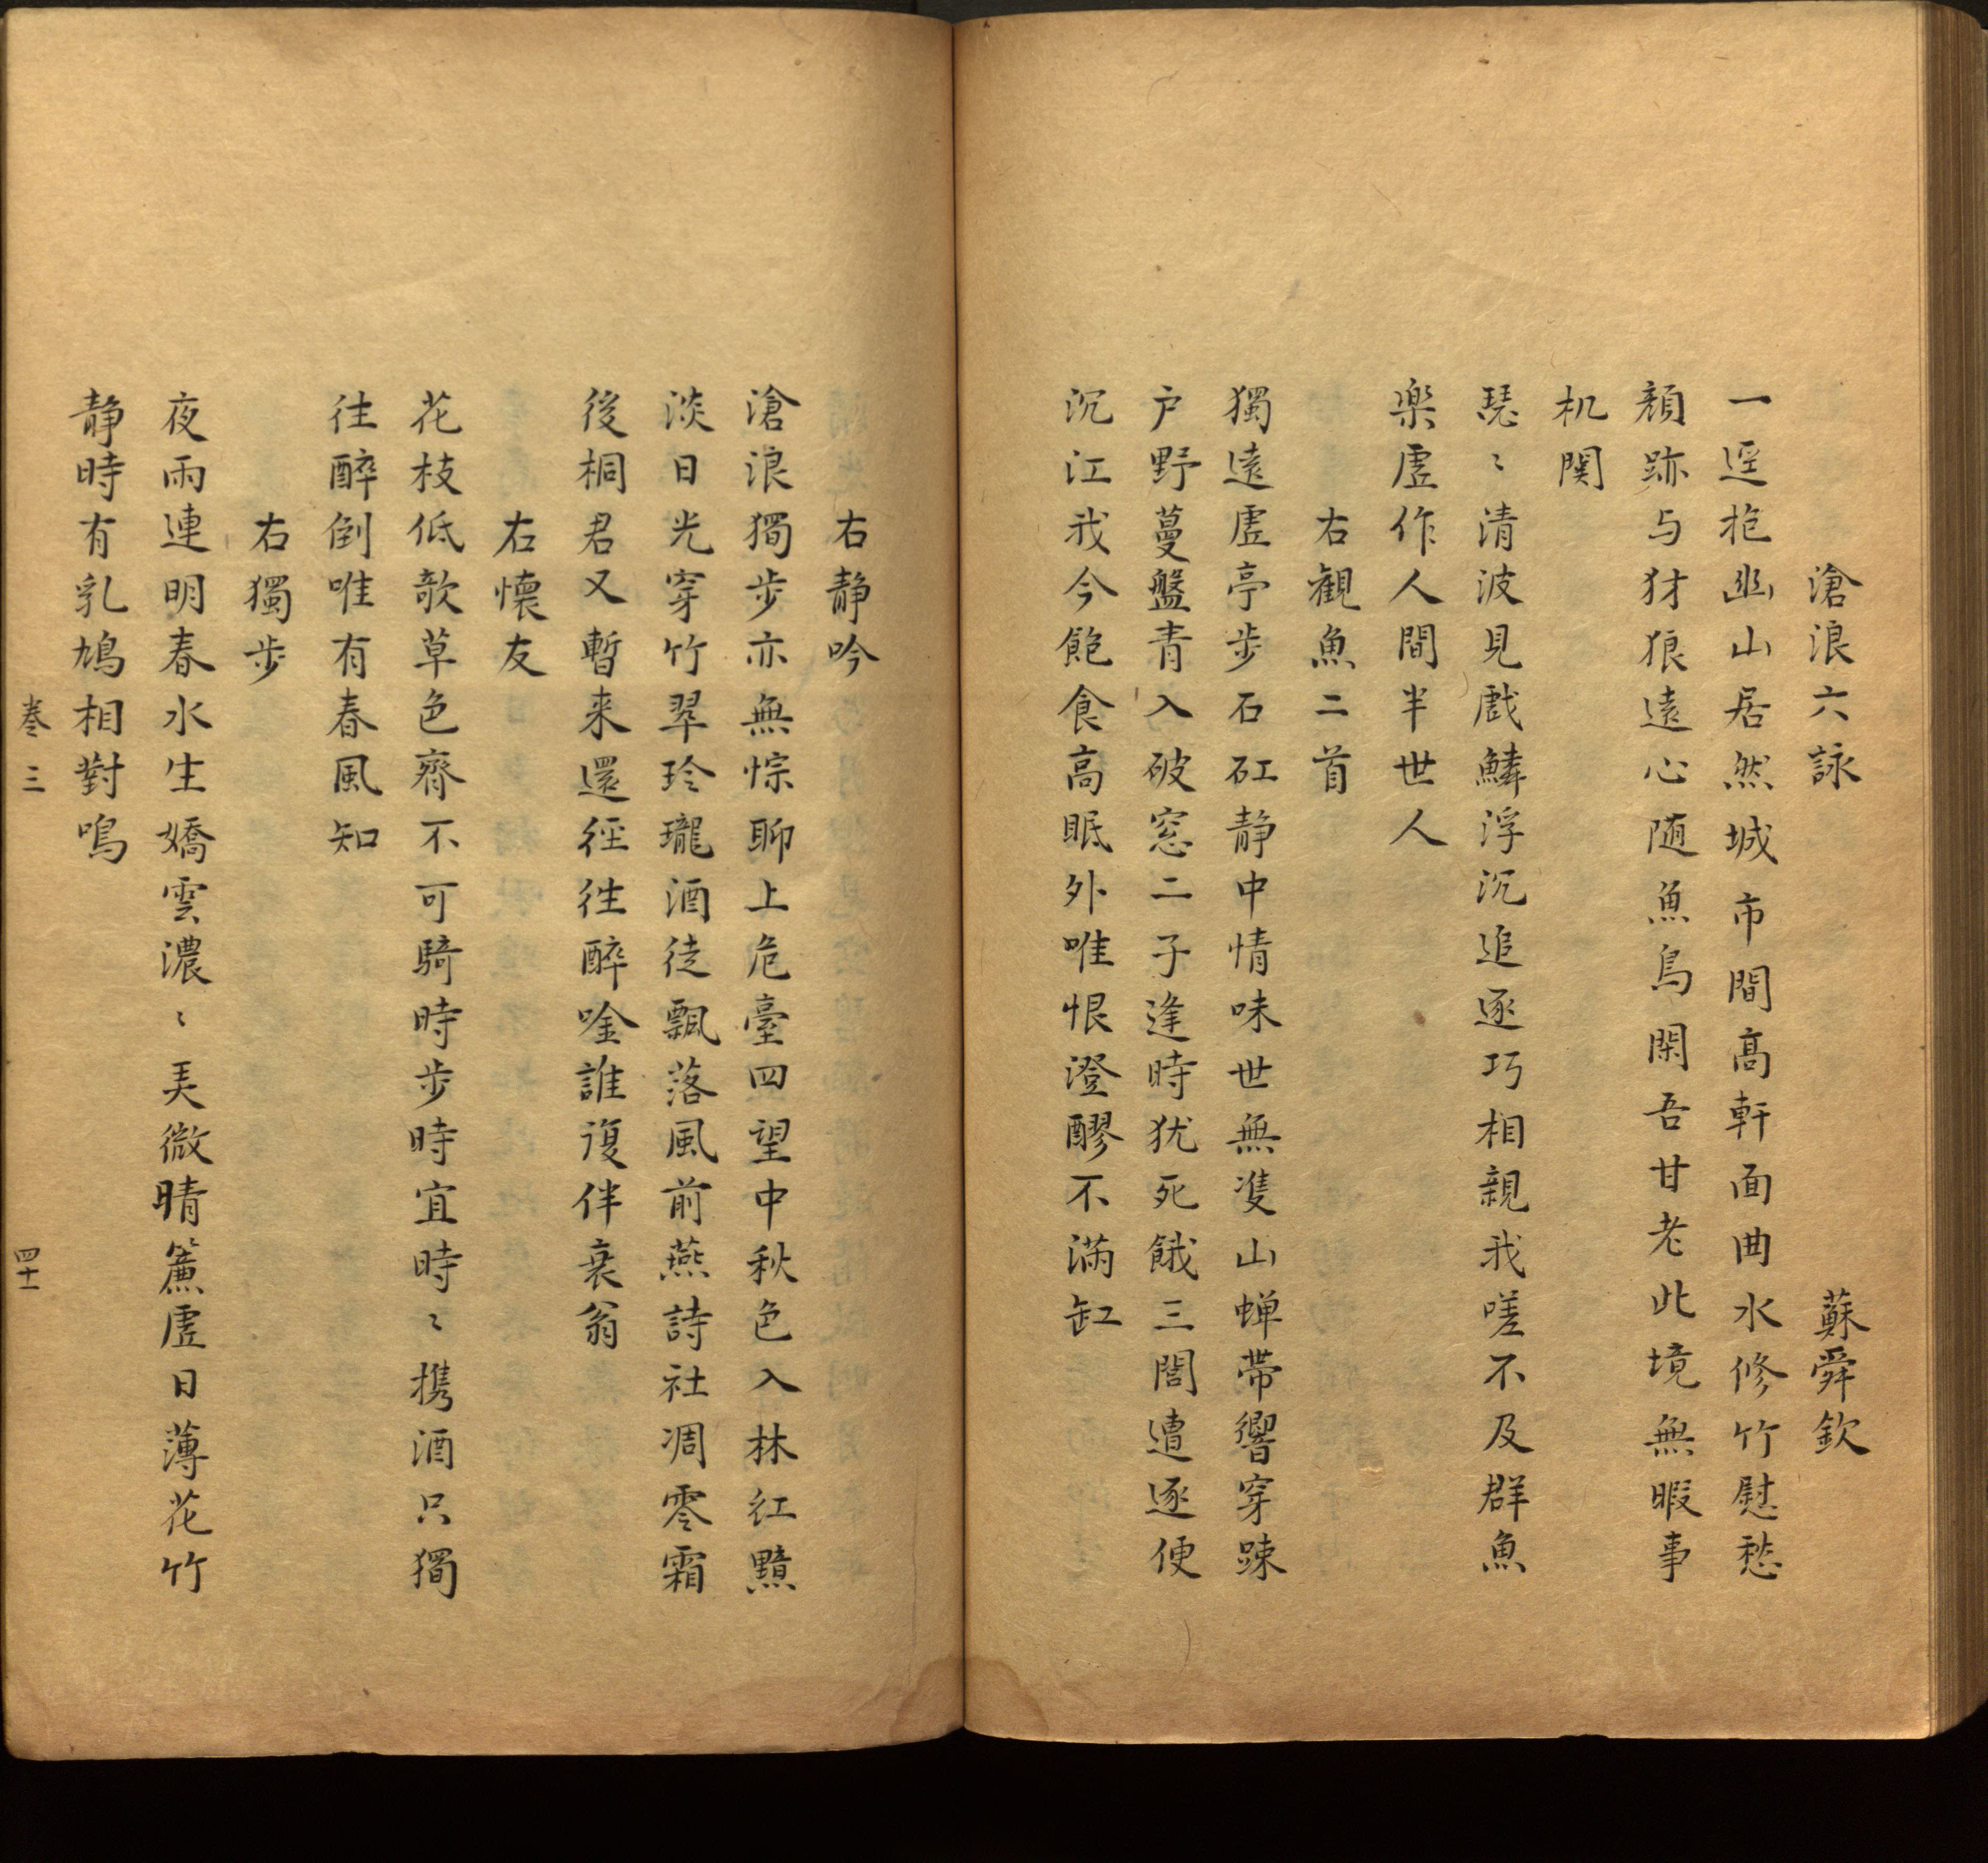 滄浪六詠　蘇舜欽
一逕抱幽山居然城市間高軒面曲水修竹慰愁
顏跡与犲狼遠心随魚鳥閑吾甘老此境無暇事
机関
瑟〻清波見戲鱗浮沉追逐巧相親我嗟不及群魚
楽虗作人間半世人
右観魚二首
獨遠虗亭步石矼静中情味世無𨾏山蝉帯響穿踈
户野蔓盤青入破窓二子逢時犹死餓三閭遭逐便
沉江我今飽食高眠外唯恨澄醪不滿缸
右静吟
滄浪獨步亦無悰聊上危臺四望中秋色入林红黯
淡日光穿竹翠玲瓏酒徒飄落風前燕詩社凋零霜
後桐君又暫来還徑往醉唫誰復伴衰翁
右懷友
花枝低欹草色齊不可騎時步時宜時〻携酒只獨
往醉倒唯有春風知
右獨步
夜雨連明春水生嬌雲濃〻美微晴簾虗日薄花竹
静時有乳鳩相對鳴
巻三　四十一